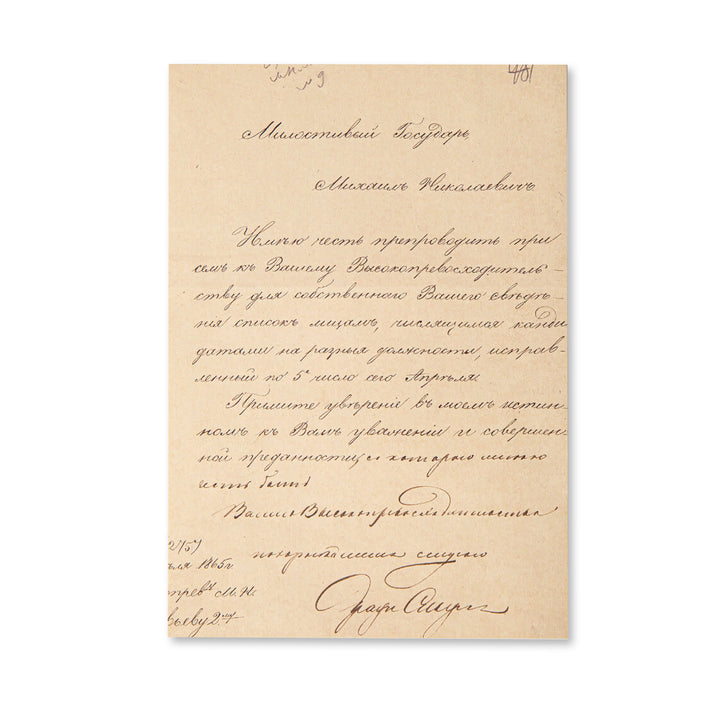 № 9
401
Милостивый Государь,
Михаилъ Николаевичъ.
Имѣю честь препроводить при
семъ къ Вашему Высокопревосходитель-
ству для собственнаго Вашего свѣдѣ-
нія списокъ лицамъ, числящимся канди-
датами на разныя должности, исправ-
ленный по 5е число сего Апрѣля.
Примите увѣреніе въ моемъ истин-
номъ къ Вамъ уваженіи и совершен-
ной преданности, съ которою имѣю
честь быть
Вашего Высокопревосходительства
покорнѣйшимъ слугою
Графъ
1865 г.
М. Н.
ьеву 2му